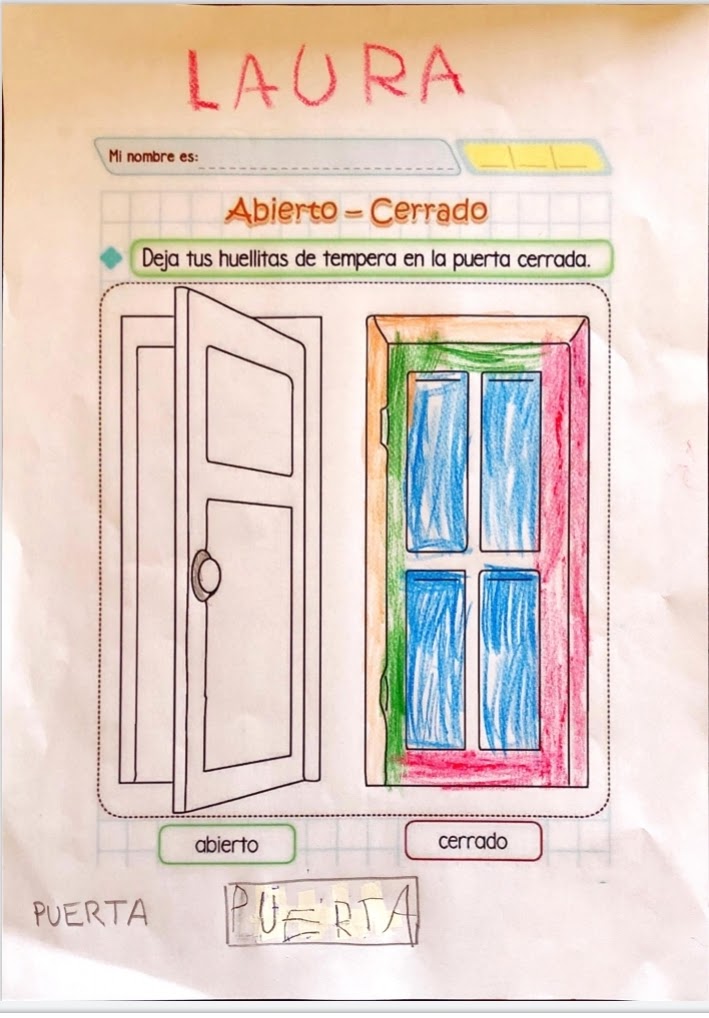 LAURA
Mi nombre es:
Abierto - Cerrado
Deja tus huellitas de tempera en la puerta cerrada.
abierto cerrado
PUERTA PUERTA